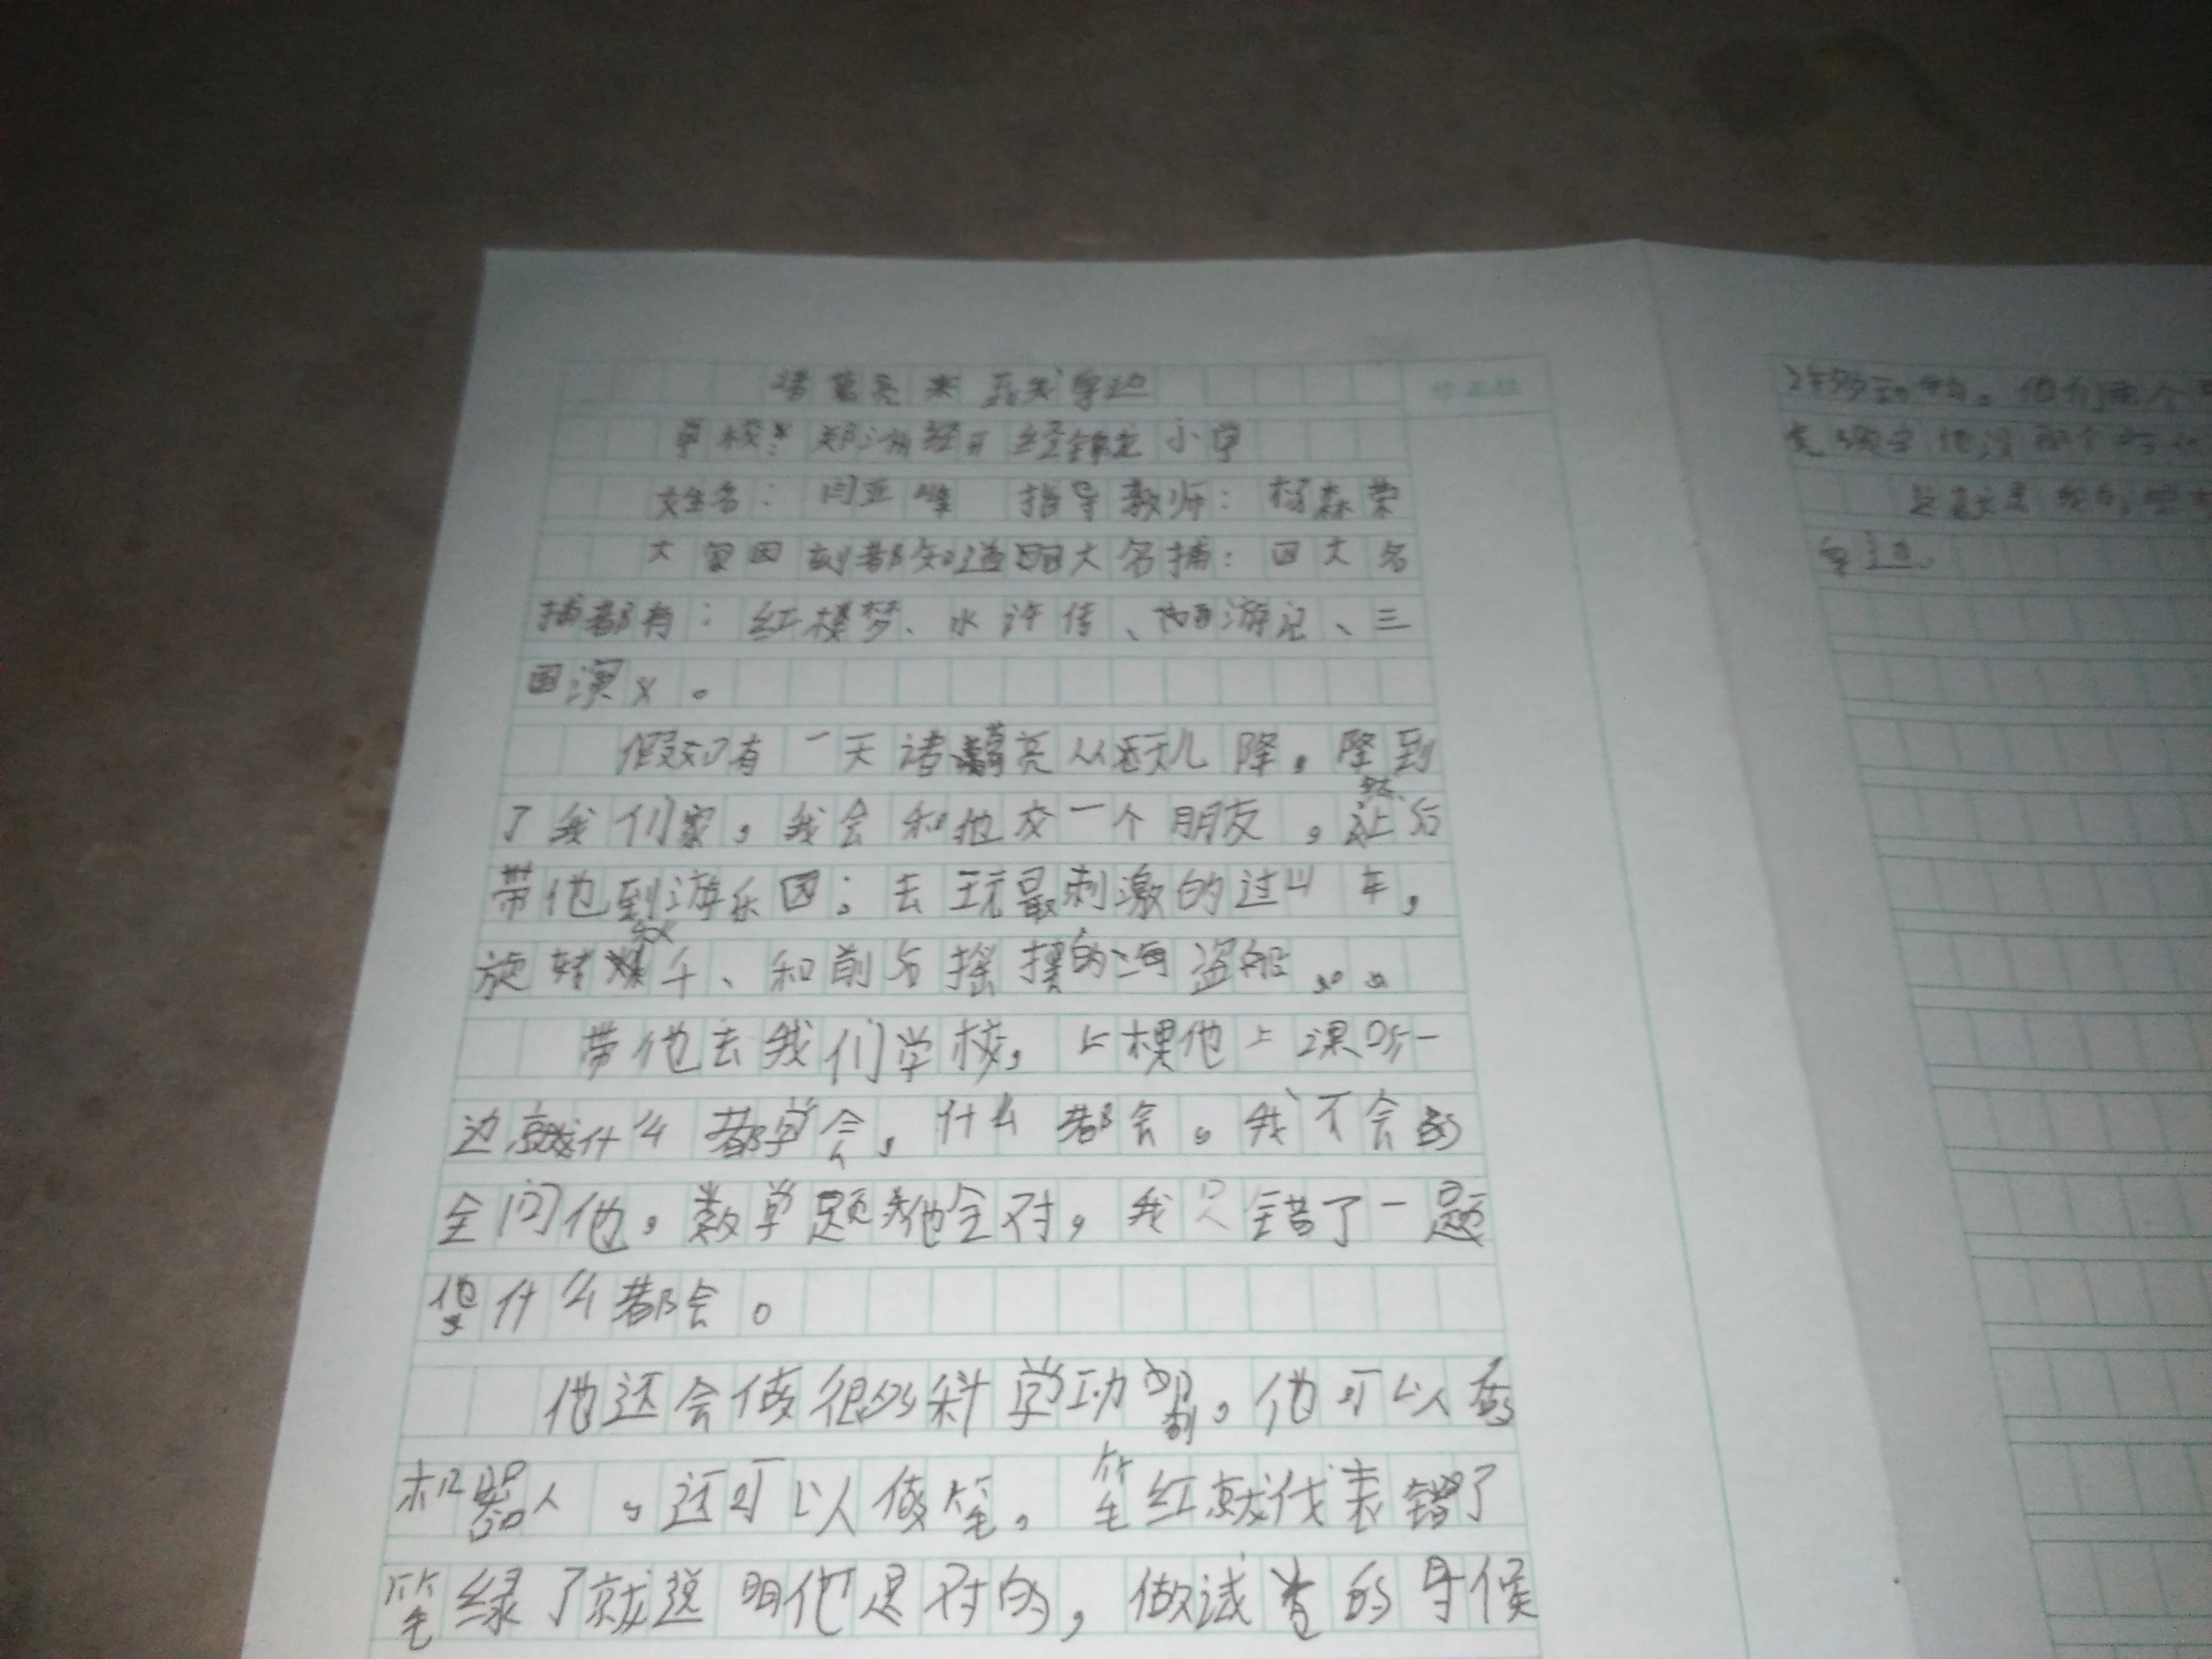 诸葛亮来到我身边
学校: 郑州经开经锦龙小学
姓名: 闫亚峰 指导教师: 杨森荣
大家因刻都知道四大名捕: 四大名
捕都有: 红楼梦、水许传、西游记、三
国演义。
假如有一天诸葛亮从天儿降,降到
了我们家,我会和他交一个朋友,然后
带他到游乐园;去玩最刺激的过山车,
旋转秋千、和前后摇摆的海盗船。
带他去我们学校,上棵他上课听一
边就什么都学会,什么都会。我不会的
全问他,数学题他全对,我只错了一题
他什么都会。
他还会做很多科学功
机器人,还可以做笔,笔红就代表错了
笔绿了就说明他是对的,做试卷的时候
许多动物。他们两个
身边。